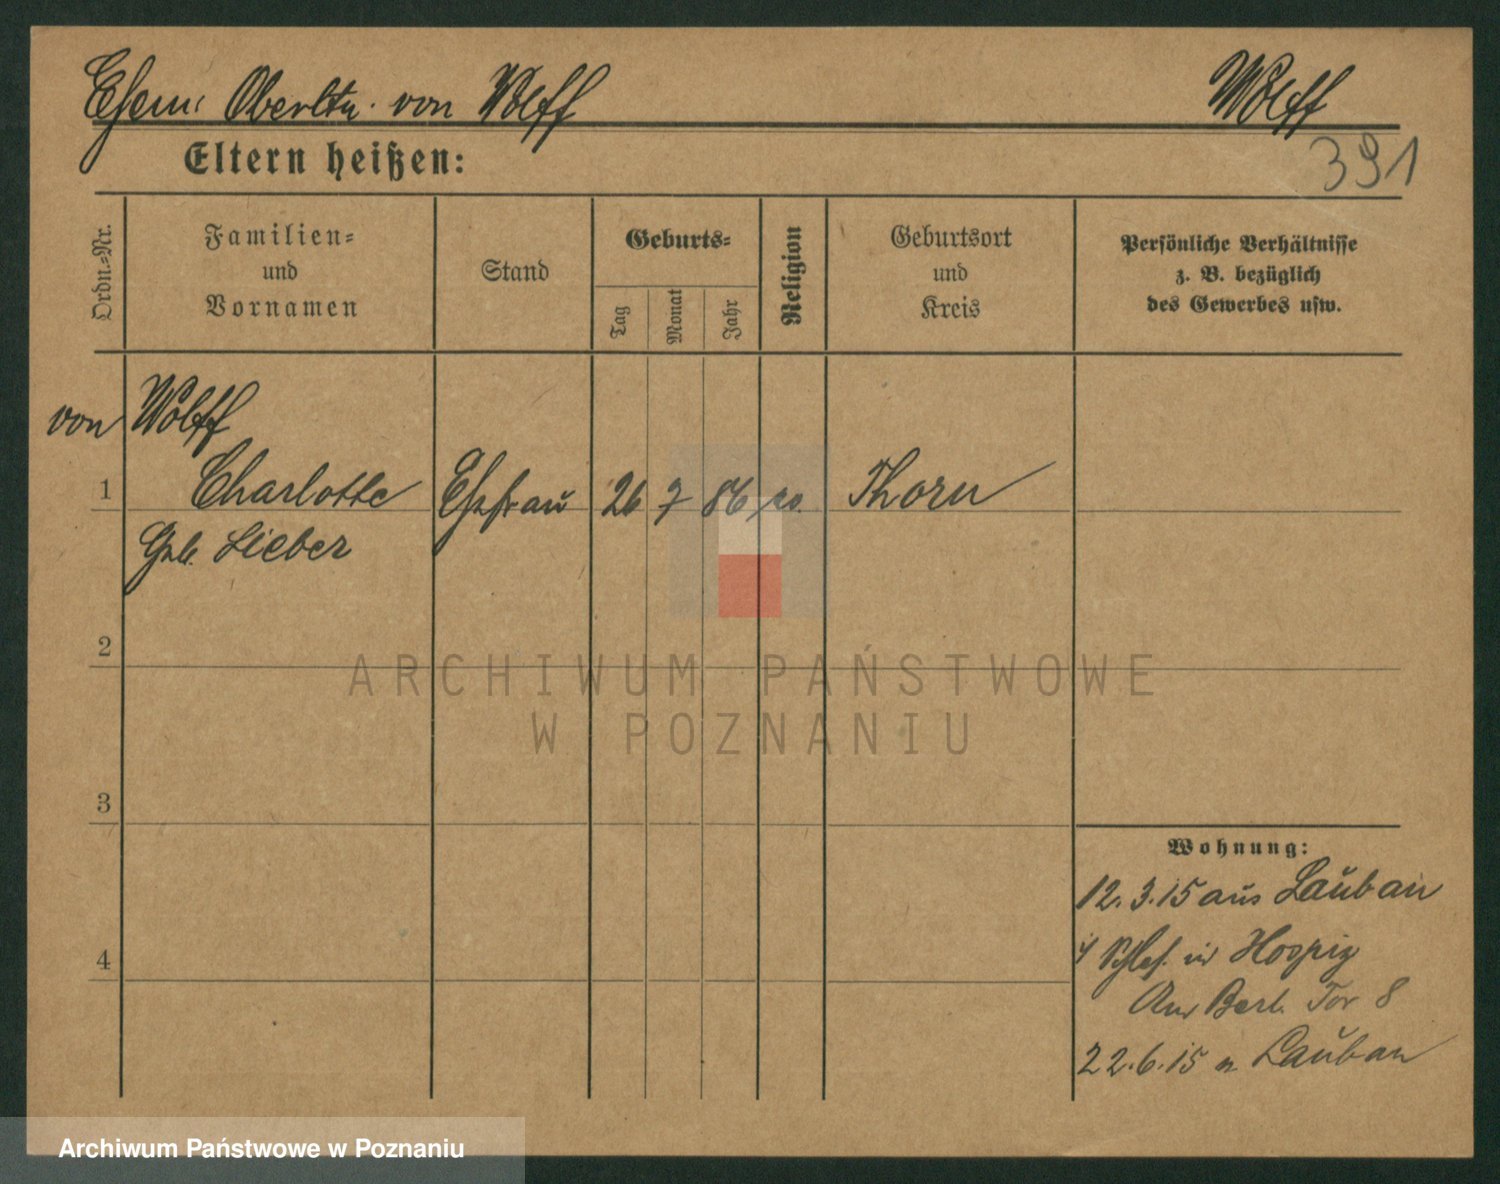 Ehem. Oberltn. von Wolff
Wolff
Eltern heißen:
391
Ordn.-Nr.
Familien-
und
Vornamen
Stand
Geburts-
Tag
Monat
Jahr
Religion
Geburtsort
und
Kreis
Persönliche Verhältnisse
z. B. bezüglich
des Gewerbes usw.
von Wolff
1 Charlotte Ehefrau 26 7 86 ev. Thorn
Geb. Lieber
2
3
4
ARCHIWUM PAŃSTWOWE
W POZNANIU
Wohnung:
12.3.15 aus Lauban
Schles. in Hospiz
Am Berl. Tor 8
22.6.15 n Lauban
Archiwum Państwowe w Poznaniu